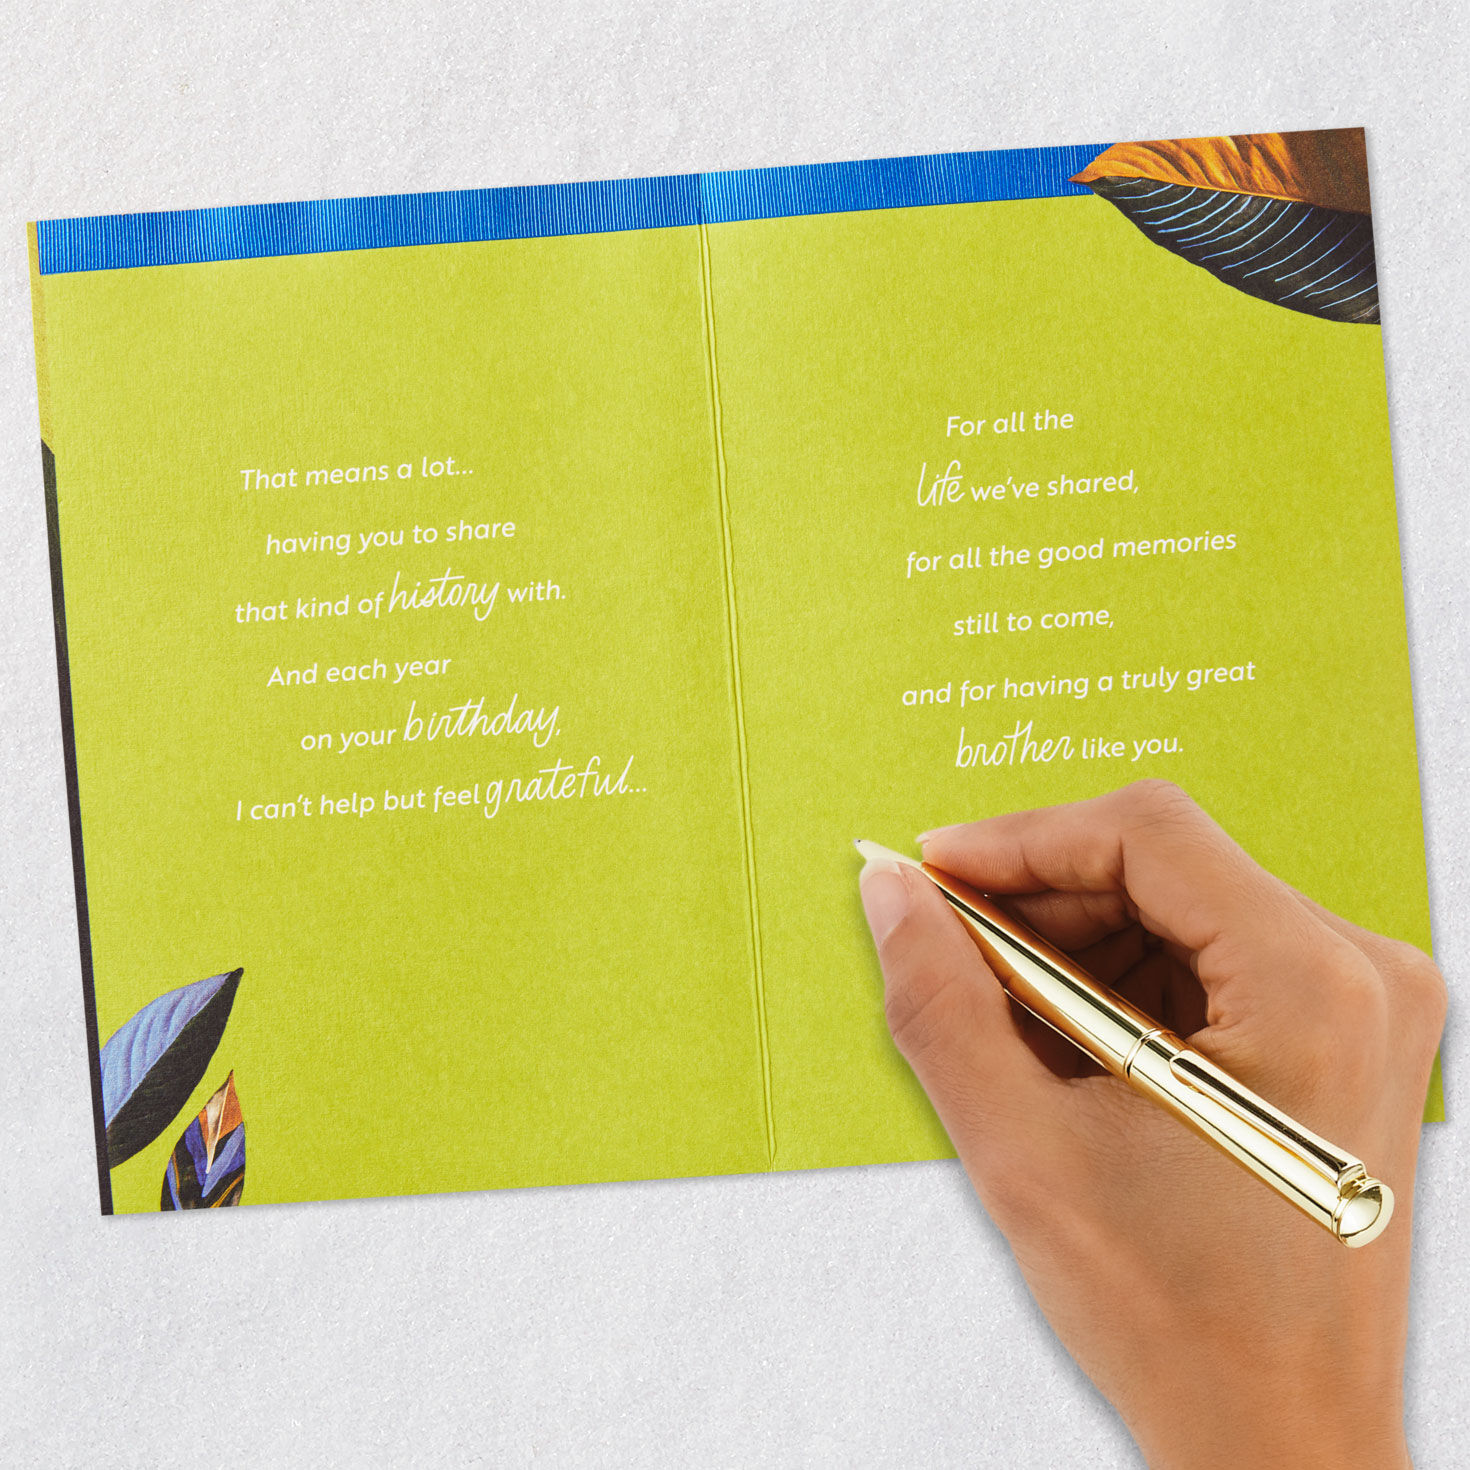 That means a lot...
having you to share
that kind of history with.
And each year
on your birthday,
I can't help but feel grateful...
For all the
life we've shared,
for all the good memories
still to come,
and for having a truly great
brother like you.